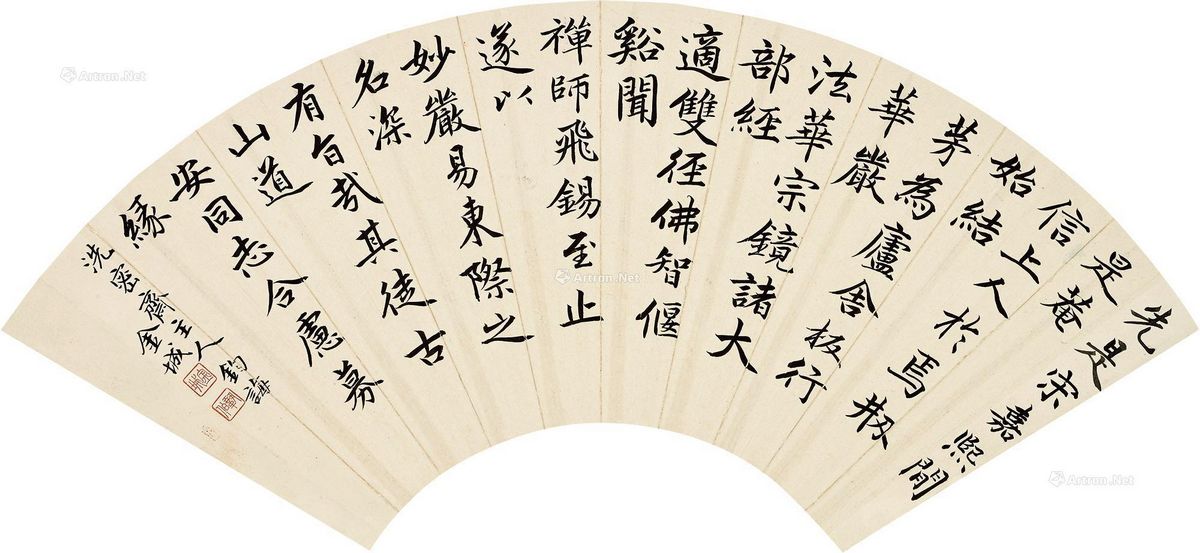 先是宋嘉熙間
是菴
信上人於焉刱
始結
茅為廬舍板行
華嚴
法華宗鏡諸大
部經
適雙徑佛智偃
谿聞
禪師飛錫至止
遂以
妙嚴易東際之
名深
有旨哉其徒古
山道
安同志合慮募
緣
洗密齋主人鈞誨
金城
Artron.Net
Artron.Net
Artron.Net